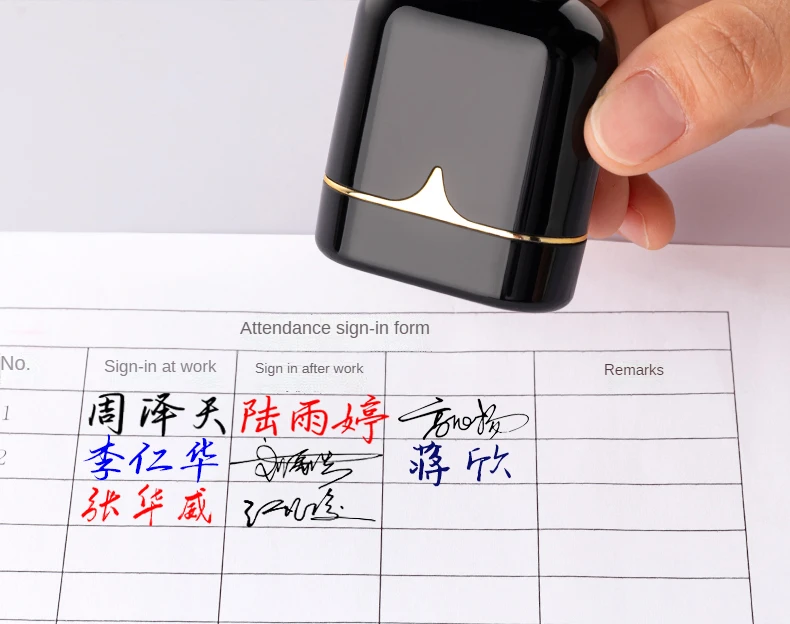 Attendance sign-in form
No. Sign-in at work Sign in after work Remarks
1 周泽天 陆雨婷
2 李仁华 蒋欣
张华威